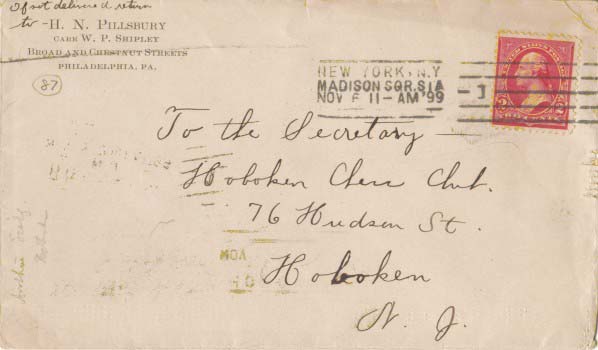 If not delivered return
to - H. N. PILLSBURY
CARE W. P. SHIPLEY
BROAD AND CHESTNUT STREETS
PHILADELPHIA, PA.
87
NEW YORK, N.Y
MADISON SQR. STA
NOV 6 11-AM '99
1
UNITED STATES POSTAGE
2 2
To the Secretary
Hoboken Chess Club.
76 Hudson St.
Hoboken
N. J.
NOV